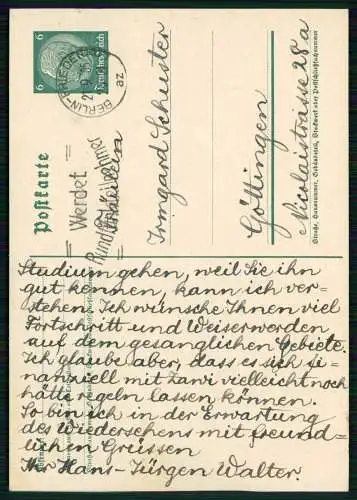 Postkarte
6 6
Deutsches Reich
BERLIN-FRIEDENAU
az
Werdet
Rundfunkteilnehmer
Fräulein
Irmgard Schuster
Göttingen
Nicolaistrasse 28a
Straße, Hausnummer, Gebäudeteil, Stockwerk oder Postschließfachnummer
Studium gehen, weil Sie ihn
gut kennen, kann ich ver-
stehen. Ich wünsche Ihnen viel
Fortschritt und Weiserwerden
auf dem gesanglichen Gebiete.
Ich glaube aber, dass es sich fi-
nanziell mit Zawi vielleicht noch
hätte regeln lassen können.
So bin ich in der Erwartung
des Wiedersehens mit freund-
lich en Grüssen
Ihr Hans-Jürgen Walter.